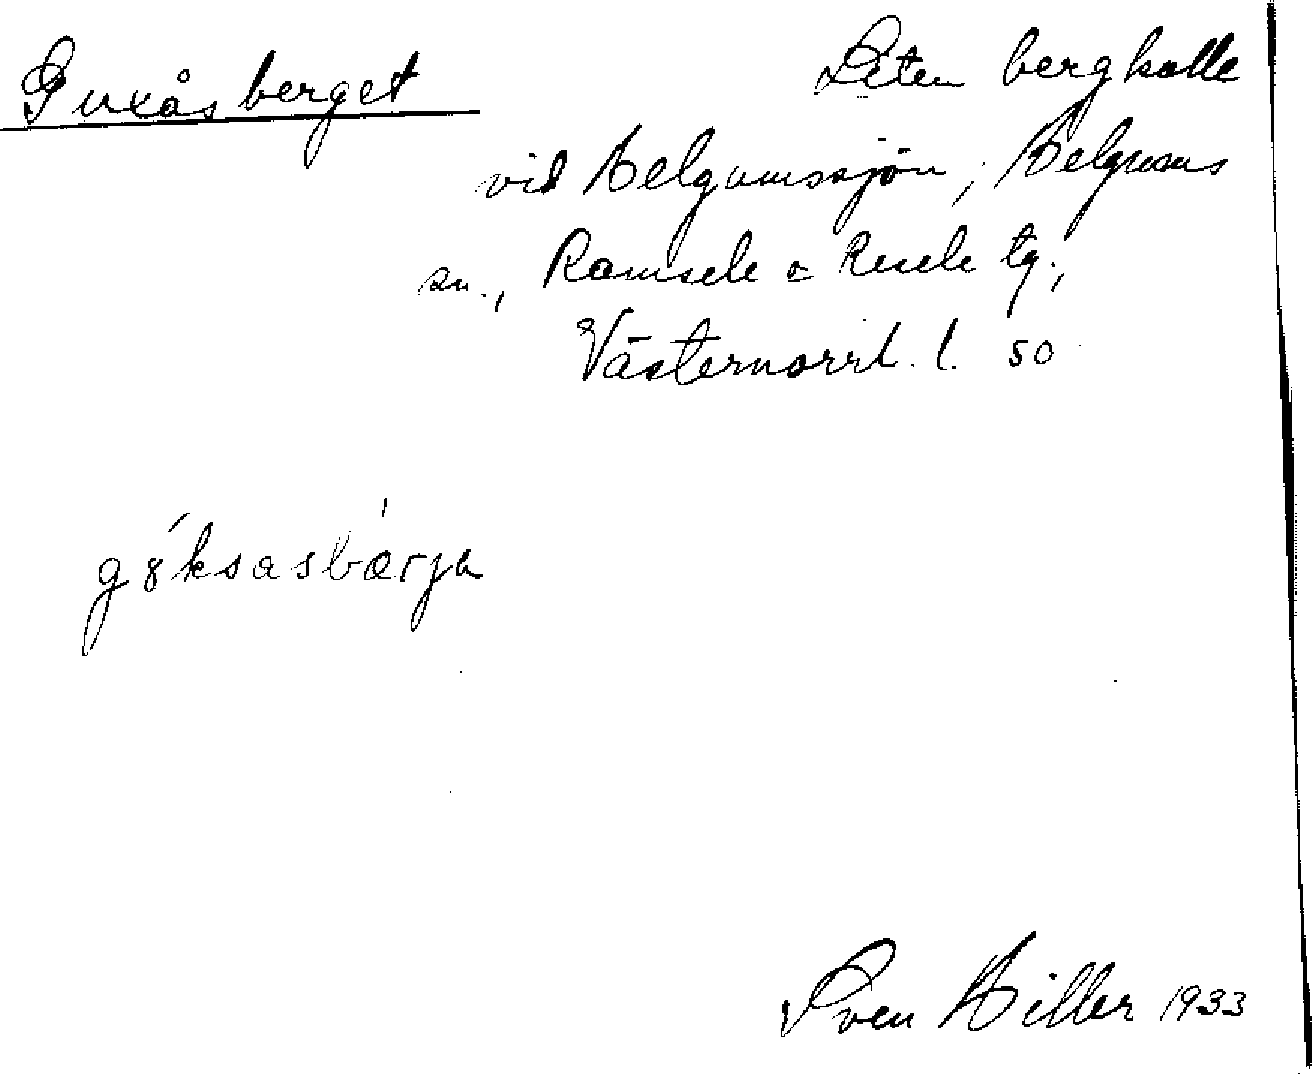 Guxåsberget
Liten bergkulle
vid Helgumssjön, Helgums
sn., Ramsele o Resele tg.,
Västernorrl. l. 50
g8ksasbærja
Sven Hiller 1933